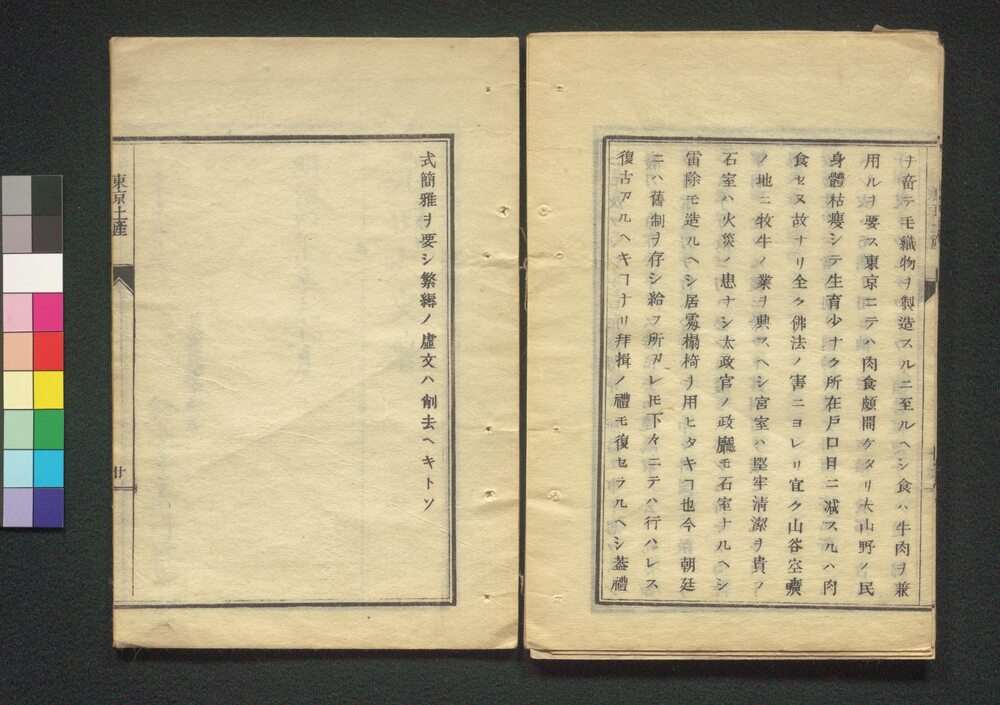 ナ畜テモ織物ヲ製造スルニ至ルヘシ食ハ牛肉ヲ兼
用ルヲ要ス東京ニテハ肉食頗開ケタリ大山野ノ民
身體枯瘦シテ生育少ナク所在戸口日ニ减スルハ肉
食セヌ故ナリ全ク佛法ノ害ニヨレリ宜ク山谷空曠
ノ地ニ牧牛ノ業ヲ興スヘシ宮室ハ堅牢淸潔ヲ貴フ
石室ハ火災ノ患ナシ太政官ノ政廳モ石室ナルヘシ
雷除モ造ルヘシ居處榻椅ヲ用ヒタキヿ也今 朝廷
ニハ舊制ヲ存シ給フ所アレ𪜈下々ニテハ行ハレス
復古アルヘキヿナリ拜揖ノ禮モ復セラルヘシ葢禮
式簡雅ヲ要シ繁縟ノ虛文ハ削去ヘキトソ
東京土產
廿